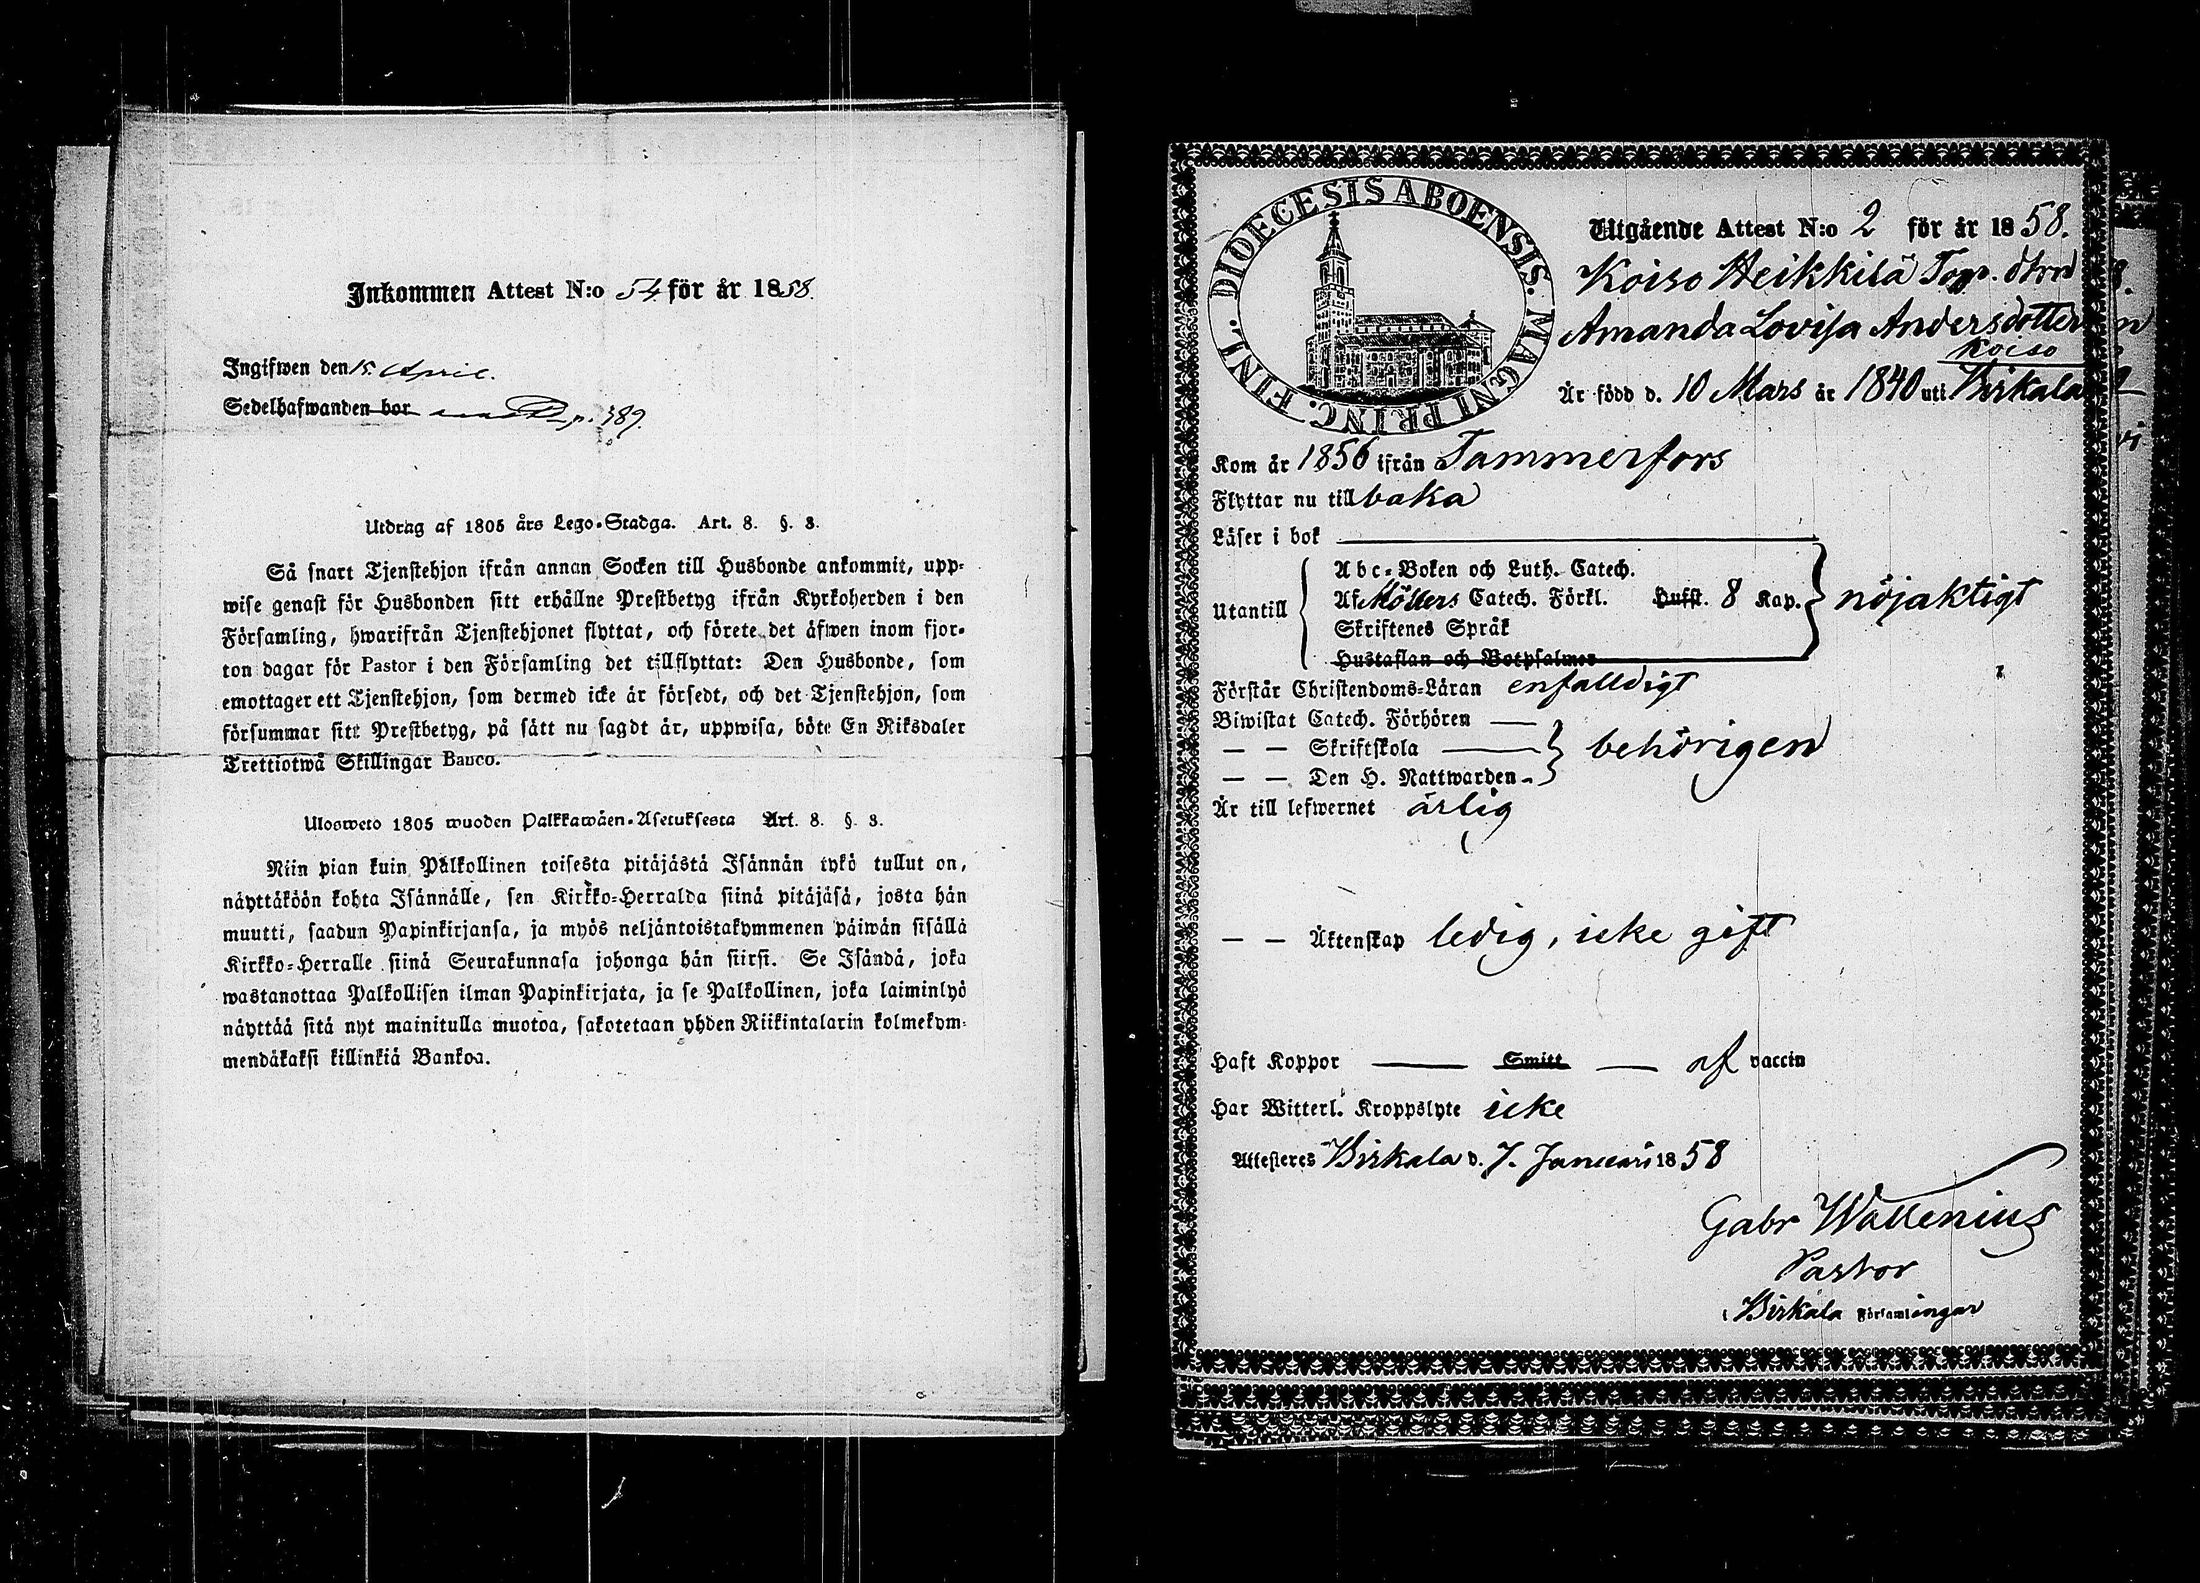 Inkommen Attest N:o 54 för år 1858.
Ingifwen den 15 April.
Sedelhafwanden bor p. 389.
Utdrag af 1805 års Lego-Stadga. Art. 8. §. 8.
Så snart Tjenstehjon ifrån annan Socken till Husbonde ankommit, upp-
wise genast för Husbonden sitt erhållne Prestbetyg ifrån Kyrkoherden i den
Församling, hwarifrån Tjenstehjonet flyttat, och förete det äfwen inom fjor-
ton dagar för Pastor i den Församling det tillflyttat: Den Husbonde, som
emottager ett Tjenstehjon, som dermed icke är försedt, och det Tjenstehjon, som
försummar sitt Prestbetyg, på sätt nu sagdt är, uppwisa, böte En Riksdaler
Trettiotwå Skillingar Banco.
Uloswеto 1805 wuoden Palkkawäen-Asetuksesta Art. 8. §. 8.
Niin pian kuin Palkollinen toisesta pitäjästä Isännän tykö tullut on,
näyttäköön kohta Isännälle, sen Kirkko-Herralda siinä pitäjäsä, josta hän
muutti, saadun Papinkirjansa, ja myös neljäntoistakymmenen päiwän sisällä
Kirkko-Herralle siinä Seurakunnasa johonga hän siirsi. Se Isändä, joka
wastanottaa Palkollisen ilman Papinkirjata, ja se Palkollinen, joka laiminlyö
näyttää sitä nyt mainitulla muotoa, sakotetaan yhden Riikintalarin kolmekym-
mendäkaksi killinkiä Bankoa.
DIOECESIS ABOENSIS. MAGNI PRINC. FINL.
Utgående Attest N:o 2 för år 1858.
Koiso Heikkilä Torp. dtrn
Amanda Lovisa Andersdotter
Koiso
Är född d. 10 Mars år 1840 uti Birkala
Kom år 1856 ifrån Tammerfors
Flyttar nu till baka
Läser i bok
Utantill
Abc-Boken och Luth. Catech.
Af Möllers Catech. Förkl. Hufst. 8 Kap. nöjaktigt
Skriftenes Språk
Hustaflan och Botpsalmer
Förstår Christendoms-Läran enfalldigt
Biwistat Catech. Förhören
— — Skriftskola behörigen
— — Den H. Nattwarden
Är till lefwernet ärlig
— — Äktenskap ledig, icke gift
Haft Koppor — Smitt — af vaccin
Har Witterl. Kroppslyte icke
Attesteres Birkala d. 7. Januari 1858
Gabr Wallenius
Pastor
i Birkala Församlingar